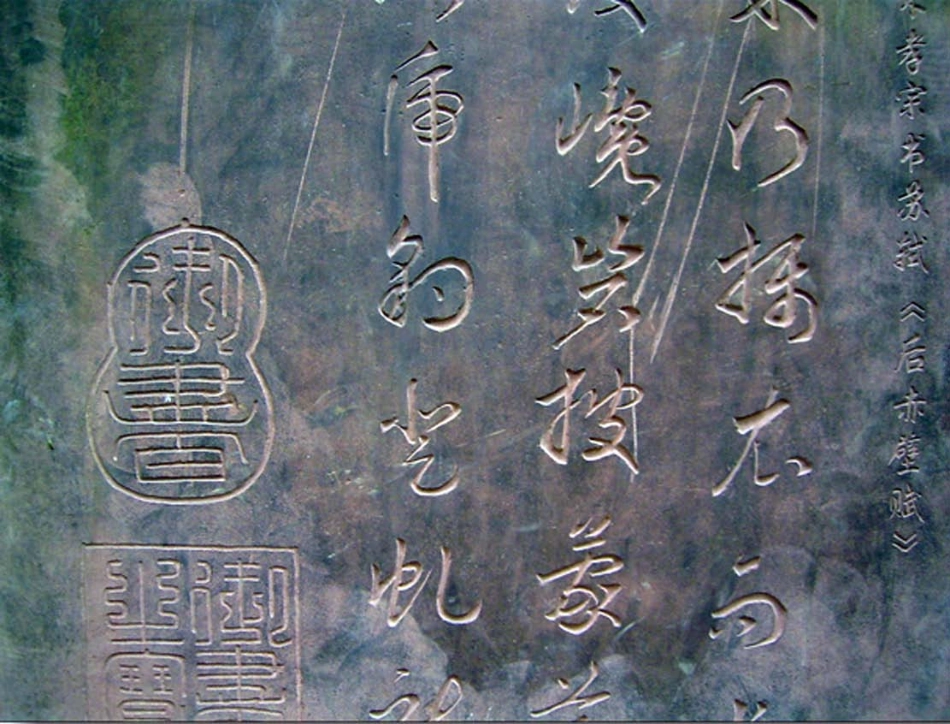 宋孝宗书苏轼《后赤壁赋》
乃攝衣而
巉岩披蒙
虎豹登虬
御書
御書之寶